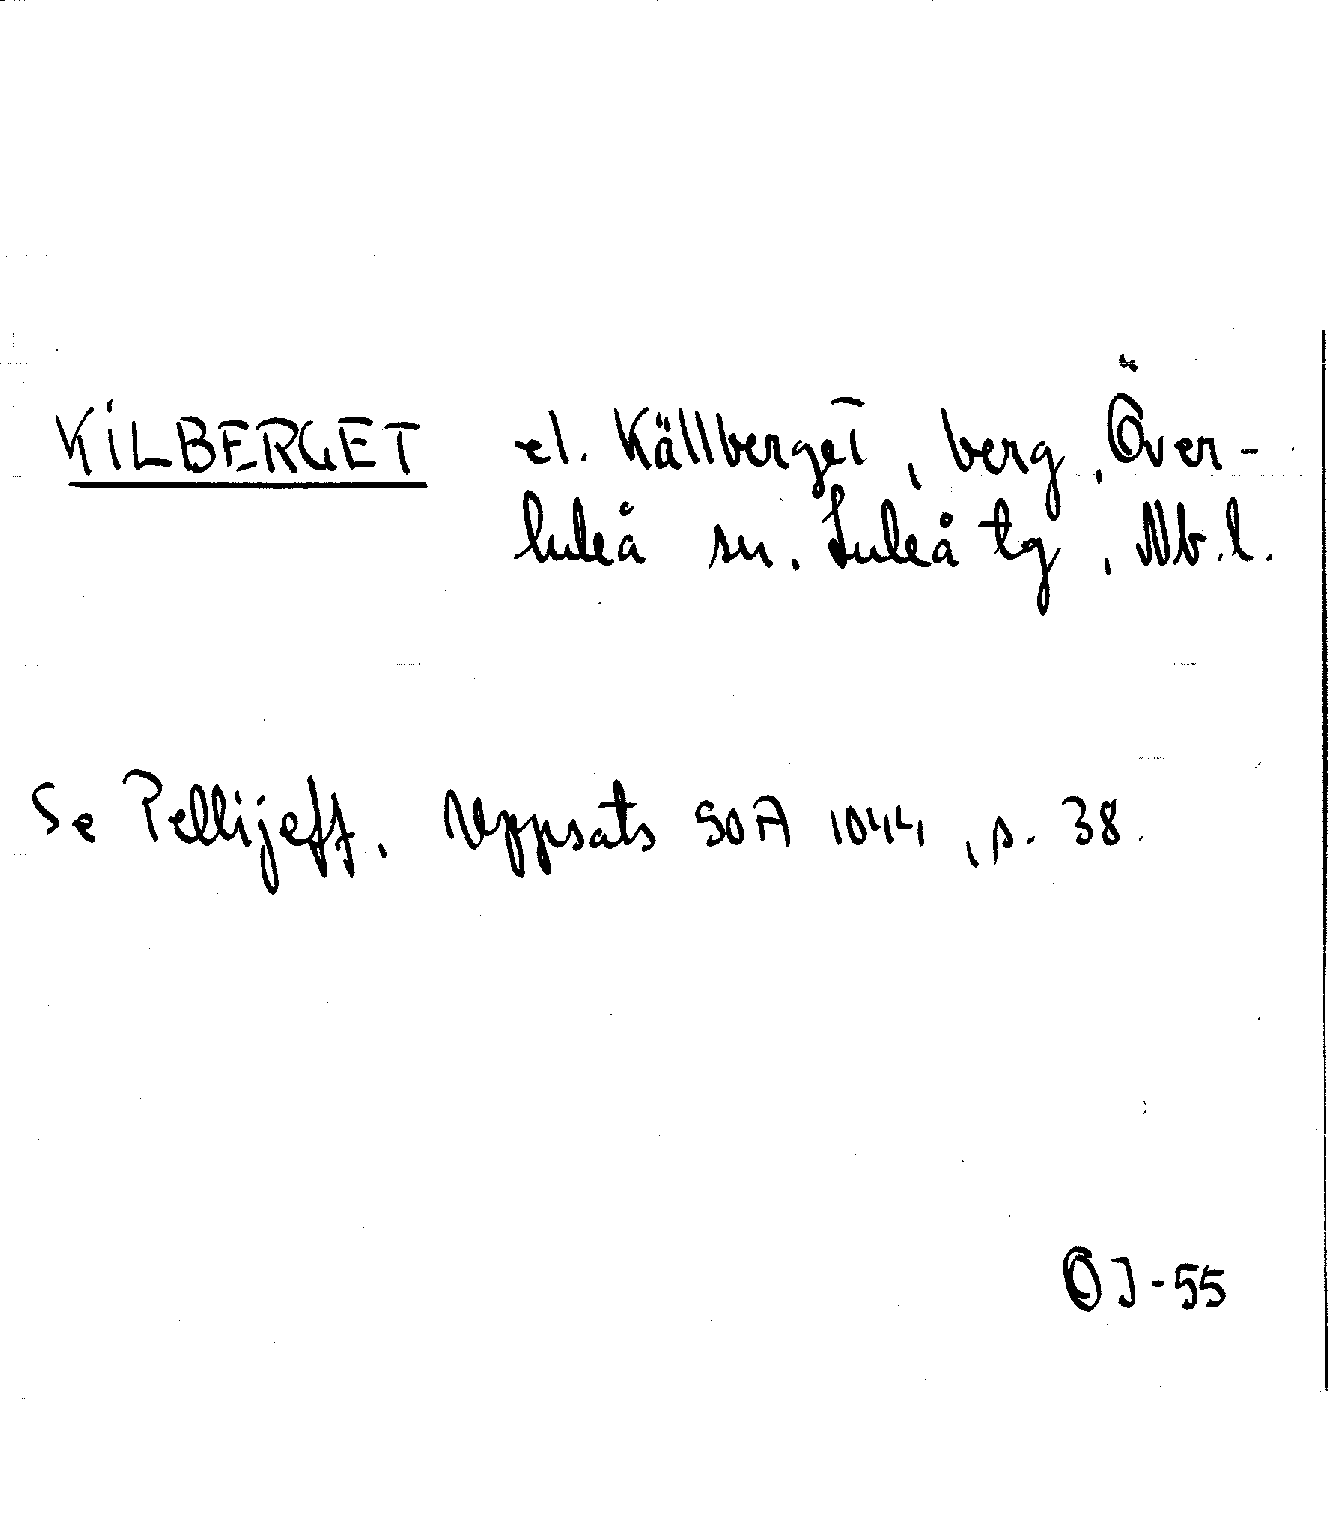 KILBERGET el. Källberget, berg, Över-
luleå sn. Luleå tg, Nb.l.
Se Pellijeff, Uppsats SOA 1044, s. 38.
OJ-55